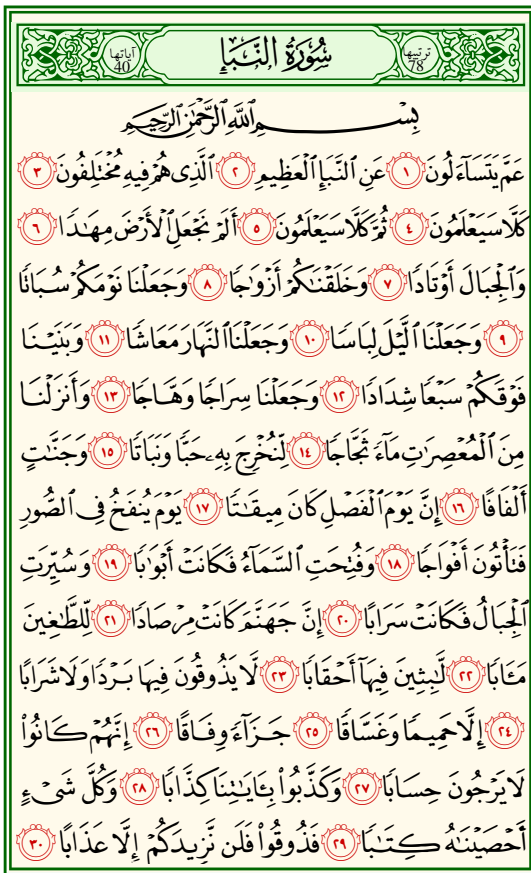 ترتيبها 78 سُورَةُ النَّبَإِ آياتها 40
بِسْمِ اللَّهِ الرَّحْمَٰنِ الرَّحِيمِ
عَمَّ يَتَسَآءَلُونَ ١ عَنِ ٱلنَّبَإِ ٱلْعَظِيمِ ٢ ٱلَّذِى هُمْ فِيهِ مُخْتَلِفُونَ ٣
كَلَّا سَيَعْلَمُونَ ٤ ثُمَّ كَلَّا سَيَعْلَمُونَ ٥ أَلَمْ نَجْعَلِ ٱلْأَرْضَ مِهَـٰدًا ٦
وَٱلْجِبَالَ أَوْتَادًا ٧ وَخَلَقْنَـٰكُمْ أَزْوَٰجًا ٨ وَجَعَلْنَا نَوْمَكُمْ سُبَاتًا
٩ وَجَعَلْنَا ٱلَّيْلَ لِبَاسًا ١٠ وَجَعَلْنَا ٱلنَّهَارَ مَعَاشًا ١١ وَبَنَيْنَا
فَوْقَكُمْ سَبْعًا شِدَادًا ١٢ وَجَعَلْنَا سِرَاجًا وَهَّاجًا ١٣ وَأَنزَلْنَا
مِنَ ٱلْمُعْصِرَٰتِ مَآءً ثَجَّاجًا ١٤ لِّنُخْرِجَ بِهِۦ حَبًّا وَنَبَاتًا ١٥ وَجَنَّـٰتٍ
أَلْفَافًا ١٦ إِنَّ يَوْمَ ٱلْفَصْلِ كَانَ مِيقَـٰتًا ١٧ يَوْمَ يُنفَخُ فِى ٱلصُّورِ
فَتَأْتُونَ أَفْوَاجًا ١٨ وَفُتِحَتِ ٱلسَّمَآءُ فَكَانَتْ أَبْوَٰبًا ١٩ وَسُيِّرَتِ
ٱلْجِبَالُ فَكَانَتْ سَرَابًا ٢٠ إِنَّ جَهَنَّمَ كَانَتْ مِرْصَادًا ٢١ لِّلطَّـٰغِينَ
مَـَٔابًا ٢٢ لَّـٰبِثِينَ فِيهَآ أَحْقَابًا ٢٣ لَّا يَذُوقُونَ فِيهَا بَرْدًا وَلَا شَرَابًا
٢٤ إِلَّا حَمِيمًا وَغَسَّاقًا ٢٥ جَزَآءً وِفَاقًا ٢٦ إِنَّهُمْ كَانُوا۟
لَا يَرْجُونَ حِسَابًا ٢٧ وَكَذَّبُوا۟ بِـَٔايَـٰتِنَا كِذَّابًا ٢٨ وَكُلَّ شَىْءٍ
أَحْصَيْنَـٰهُ كِتَـٰبًا ٢٩ فَذُوقُوا۟ فَلَن نَّزِيدَكُمْ إِلَّا عَذَابًا ٣٠